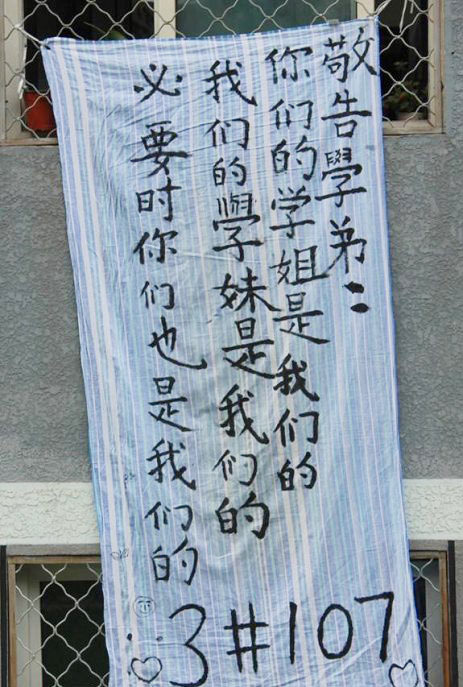 敬告學弟：
你们的学姐是我们的
我们的學妹是我们的
必要时你们也是我们的
3#107